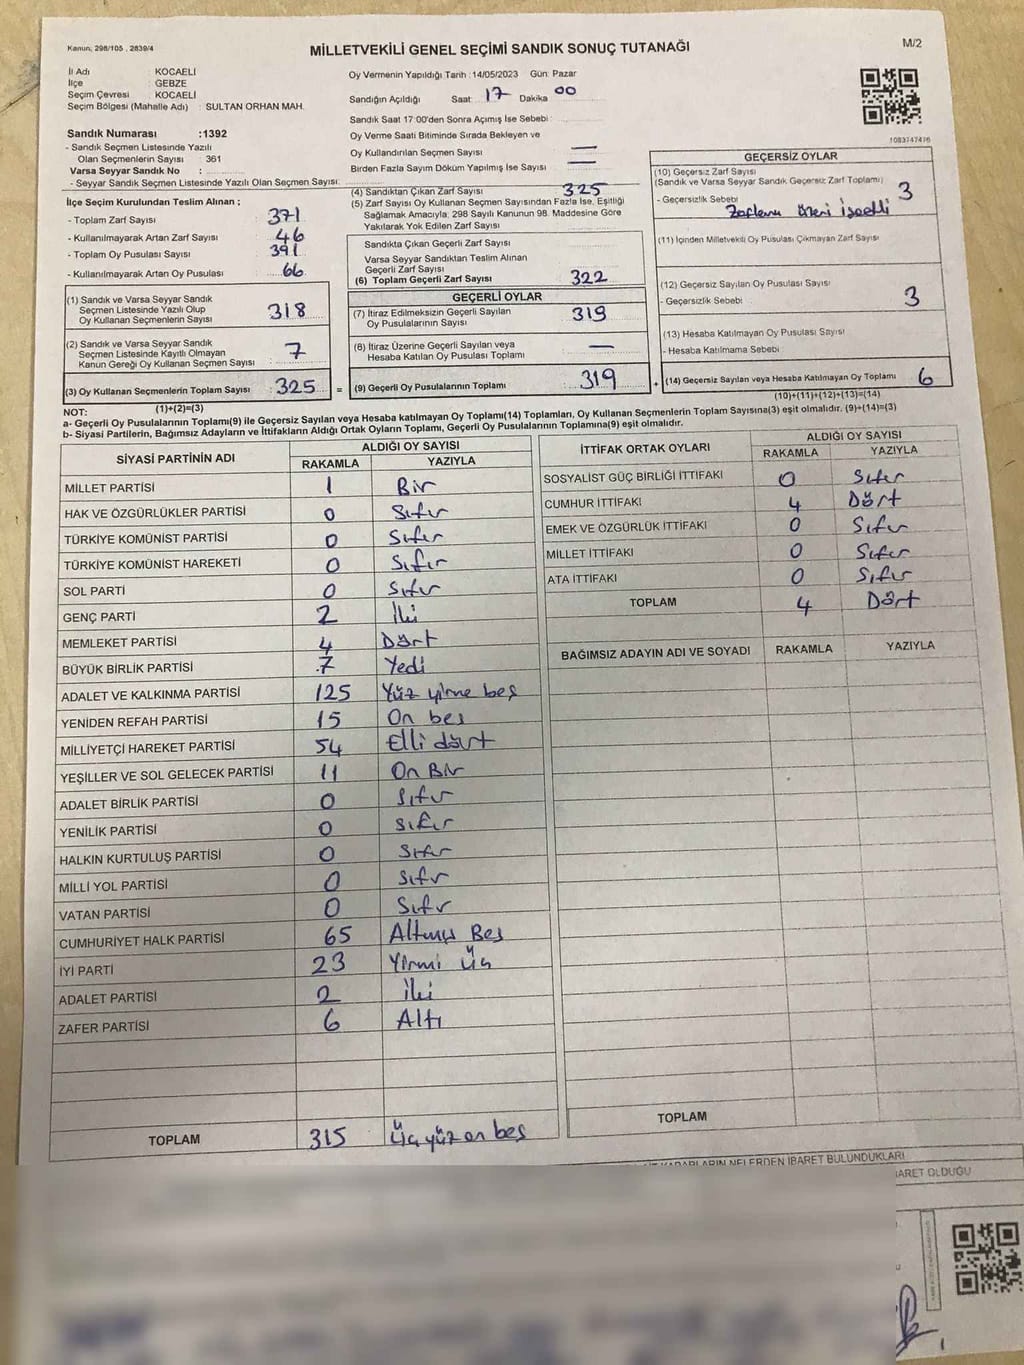 Kanun, 298/105 , 2839/4
MİLLETVEKİLİ GENEL SEÇİMİ SANDIK SONUÇ TUTANAĞI
M/2
İl Adı : KOCAELİ
İlçe : GEBZE
Seçim Çevresi : KOCAELİ
Seçim Bölgesi (Mahalle Adı) : SULTAN ORHAN MAH.
Oy Vermenin Yapıldığı Tarih :14/05/2023 Gün: Pazar
Sandığın Açıldığı Saat: 17 Dakika 00
Sandık Saat 17:00'den Sonra Açımış İse Sebebi :
Oy Verme Saati Bitiminde Sırada Bekleyen ve
Oy Kullandırılan Seçmen Sayısı —
Birden Fazla Sayım Döküm Yapılmış İse Sayısı —
1083747476
Sandık Numarası :1392
- Sandık Seçmen Listesinde Yazılı
Olan Seçmenlerin Sayısı : 361
Varsa Seyyar Sandık No :
- Seyyar Sandık Seçmen Listesinde Yazılı Olan Seçmen Sayısı:
İlçe Seçim Kurulundan Teslim Alınan ;
- Toplam Zarf Sayısı : 371
- Kullanılmayarak Artan Zarf Sayısı : 46
- Toplam Oy Pusulası Sayısı : 391
- Kullanılmayarak Artan Oy Pusulası : 66
(1) Sandık ve Varsa Seyyar Sandık
Seçmen Listesinde Yazılı Olup
Oy Kullanan Seçmenlerin Sayısı : 318
(2) Sandık ve Varsa Seyyar Sandık
Seçmen Listesinde Kayıtlı Olmayan
Kanun Gereği Oy Kullanan Seçmen Sayısı : 7
(3) Oy Kullanan Seçmenlerin Toplam Sayısı : 325
(1)+(2)=(3)
(4) Sandıktan Çıkan Zarf Sayısı 325
(5) Zarf Sayısı Oy Kullanan Seçmen Sayısından Fazla İse, Eşitliği
Sağlamak Amacıyla, 298 Sayılı Kanunun 98. Maddesine Göre
Yakılarak Yok Edilen Zarf Sayısı
Sandıkta Çıkan Geçerli Zarf Sayısı
Varsa Seyyar Sandıktan Teslim Alınan
Geçerli Zarf Sayısı
(6) Toplam Geçerli Zarf Sayısı 322
GEÇERLİ OYLAR
(7) İtiraz Edilmeksizin Geçerli Sayılan
Oy Pusulalarının Sayısı : 319
(8) İtiraz Üzerine Geçerli Sayılan veya
Hesaba Katılan Oy Pusulası Toplamı : —
= (9) Geçerli Oy Pusulalarının Toplamı : 319
GEÇERSİZ OYLAR
(10) Geçersiz Zarf Sayısı
(Sandık ve Varsa Seyyar Sandık Geçersiz Zarf Toplamı) 3
- Geçersizlik Sebebi :
(11) İçinden Milletvekili Oy Pusulası Çıkmayan Zarf Sayısı
(12) Geçersiz Sayılan Oy Pusulası Sayısı
- Geçersizlik Sebebi : 3
(13) Hesaba Katılmayan Oy Pusulası Sayısı
- Hesaba Katılmama Sebebi
+ (14) Geçersiz Sayılan veya Hesaba Katılmayan Oy Toplamı 6
(10)+(11)+(12)+(13)=(14)
NOT:
a- Geçerli Oy Pusulalarının Toplamı(9) ile Geçersiz Sayılan veya Hesaba katılmayan Oy Toplamı(14) Toplamları, Oy Kullanan Seçmenlerin Toplam Sayısına(3) eşit olmalıdır. (9)+(14)=(3)
b- Siyasi Partilerin, Bağımsız Adayların ve İttifakların Aldığı Ortak Oyların Toplamı, Geçerli Oy Pusulalarının Toplamına(9) eşit olmalıdır.
SİYASİ PARTİNİN ADI ALDIĞI OY SAYISI
RAKAMLA YAZIYLA
MİLLET PARTİSİ 1 Bir
HAK VE ÖZGÜRLÜKLER PARTİSİ 0 Sıfır
TÜRKİYE KOMÜNİST PARTİSİ 0 Sıfır
TÜRKİYE KOMÜNİST HAREKETİ 0 Sıfır
SOL PARTİ 0 Sıfır
GENÇ PARTİ 2 İki
MEMLEKET PARTİSİ 4 Dört
BÜYÜK BİRLİK PARTİSİ 7 Yedi
ADALET VE KALKINMA PARTİSİ 125 Yüz yirmi beş
YENİDEN REFAH PARTİSİ 15 On beş
MİLLİYETÇİ HAREKET PARTİSİ 54 Elli dört
YEŞİLLER VE SOL GELECEK PARTİSİ 11 On Bir
ADALET BİRLİK PARTİSİ 0 Sıfır
YENİLİK PARTİSİ 0 Sıfır
HALKIN KURTULUŞ PARTİSİ 0 Sıfır
MİLLİ YOL PARTİSİ 0 Sıfır
VATAN PARTİSİ 0 Sıfır
CUMHURİYET HALK PARTİSİ 65 Altmış Beş
İYİ PARTİ 23 Yirmi Üç
ADALET PARTİSİ 2 İki
ZAFER PARTİSİ 6 Altı
TOPLAM 315 Üç yüz on beş
İTTİFAK ORTAK OYLARI ALDIĞI OY SAYISI
RAKAMLA YAZIYLA
SOSYALİST GÜÇ BİRLİĞİ İTTİFAKI 0 Sıfır
CUMHUR İTTİFAKI 4 Dört
EMEK VE ÖZGÜRLÜK İTTİFAKI 0 Sıfır
MİLLET İTTİFAKI 0 Sıfır
ATA İTTİFAKI 0 Sıfır
TOPLAM 4 Dört
BAĞIMSIZ ADAYIN ADI VE SOYADI RAKAMLA YAZIYLA
TOPLAM
KARARLARIN NELERDEN İBARET BULUNDUKLARI
OLDUĞU